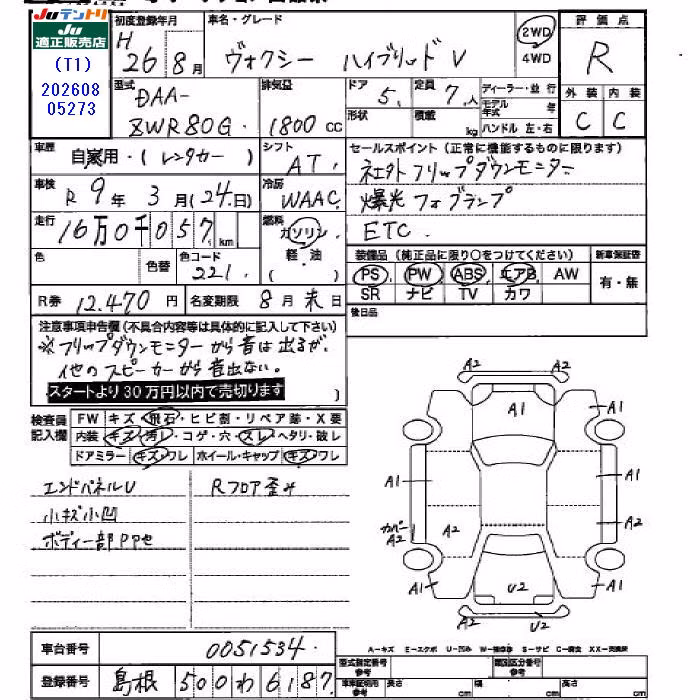 Juテントリ
Ju
適正販売店
(T1)
202608
05273
初度登録年月 車名・グレード 評価点
H 26年 8月 ヴォクシー ハイブリッド V 2WD 4WD R
型式 排気量 ドア 定員 ディーラー・並行 外装 内装
DAA- 5 7人 モデル年式 年
ZWR80G 1800cc 形状 積載 kg ハンドル 左・右 C C
車歴 自家用・(レンタカー) シフト AT セールスポイント(正常に機能するものに限ります)
社外フリップダウンモニター
車検 R 9年 3月(24日) 冷房 WAAC
爆光フォグランプ
走行 16万0千057km 燃料 ガソリン 軽・油 ( )
ETC
色 色替 色コード 221
装備品(純正品に限り○をつけてください) 新車保証書
PS PW ABS エアB AW 有・無
SR ナビ TV カワ
R券 12.470円 名変期限 8月末日
後日品
注意事項申告欄(不具合内容等は具体的に記入して下さい)
※フリップダウンモニターから音は出るが、
他のスピーカーから音出ない。
スタートより30万円以内で売切ります
検査員記入欄
FW キズ・飛石・ヒビ割・リペア跡・X要
内装 キズ・汚レ・コゲ・穴・スレ・ヘタリ・破レ
ドアミラー キズ・ワレ ホイール・キャップ キズ・ワレ
エンドパネルU Rフロア歪み
小キズ小凹
ボディー部PPセ
A2 A2
A1
A1 A1
A1 A1
カバーA2 A2 A2
A1 U2 A1
A2 U2
A-キズ E-エクボ U-凹み W-補修跡 S-サビ C-腐食 XX-交換済
車台番号 0051534
登録番号 島根 500 わ 6187
型式指定番号 参考 類別区分番号 参考
車車証明用 参考 長さ cm 幅 cm 高さ cm